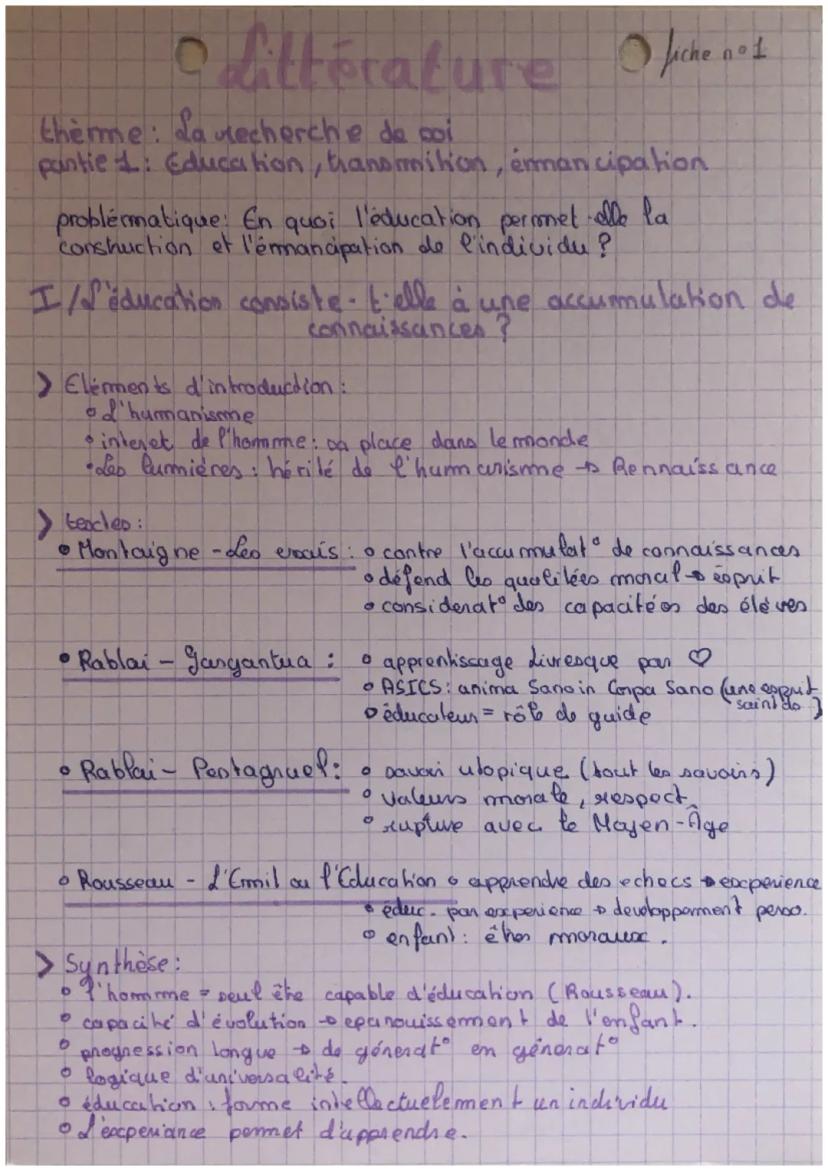 Littérature
fiche n°1
thème: La recherche de soi
partie 1: Education, transmition, émancipation
problématique: En quoi l'éducation permet-elle la
construction et l'émancipation de l'individu?
I/L'éducation consiste-t'elle à une accumulation de
connaissances?
> Eléments d'introduction:
• L'humanisme
• interet de l'homme: sa place dans le monde
• Les lumières: hérité de l'humanisme → Rennaissance
> textes:
• Montaigne - Les essais: • contre l'accumulat° de connaissances
• défend les qualitées moral → esprit
• considerat° des capacitées des élèves
• Rablai - Gargantua: • apprentissage livresque par ♡
• ASICS: anima Sano in Corpa Sano (une esprit
saint do)
• éducateur = rôle de guide
• Rablai - Pentagruel: • savoir utopique (tout les savoirs)
• valeurs morale, respect
• rupture avec le Moyen-Âge
• Rousseau - L'Emil ou l'Education • apprendre des echecs → expérience
• éduc. par experience → developpement perso.
• enfant: êtres moraux.
> Synthèse:
• l'homme = seul être capable d'éducation (Rousseau).
• capacité d'évolution → epanouissement de l'enfant.
• progression longue → de générat° en générat°
• logique d'universalité.
• éducation: forme intellectuelement un individu
• L'experiance permet d'apprendre.